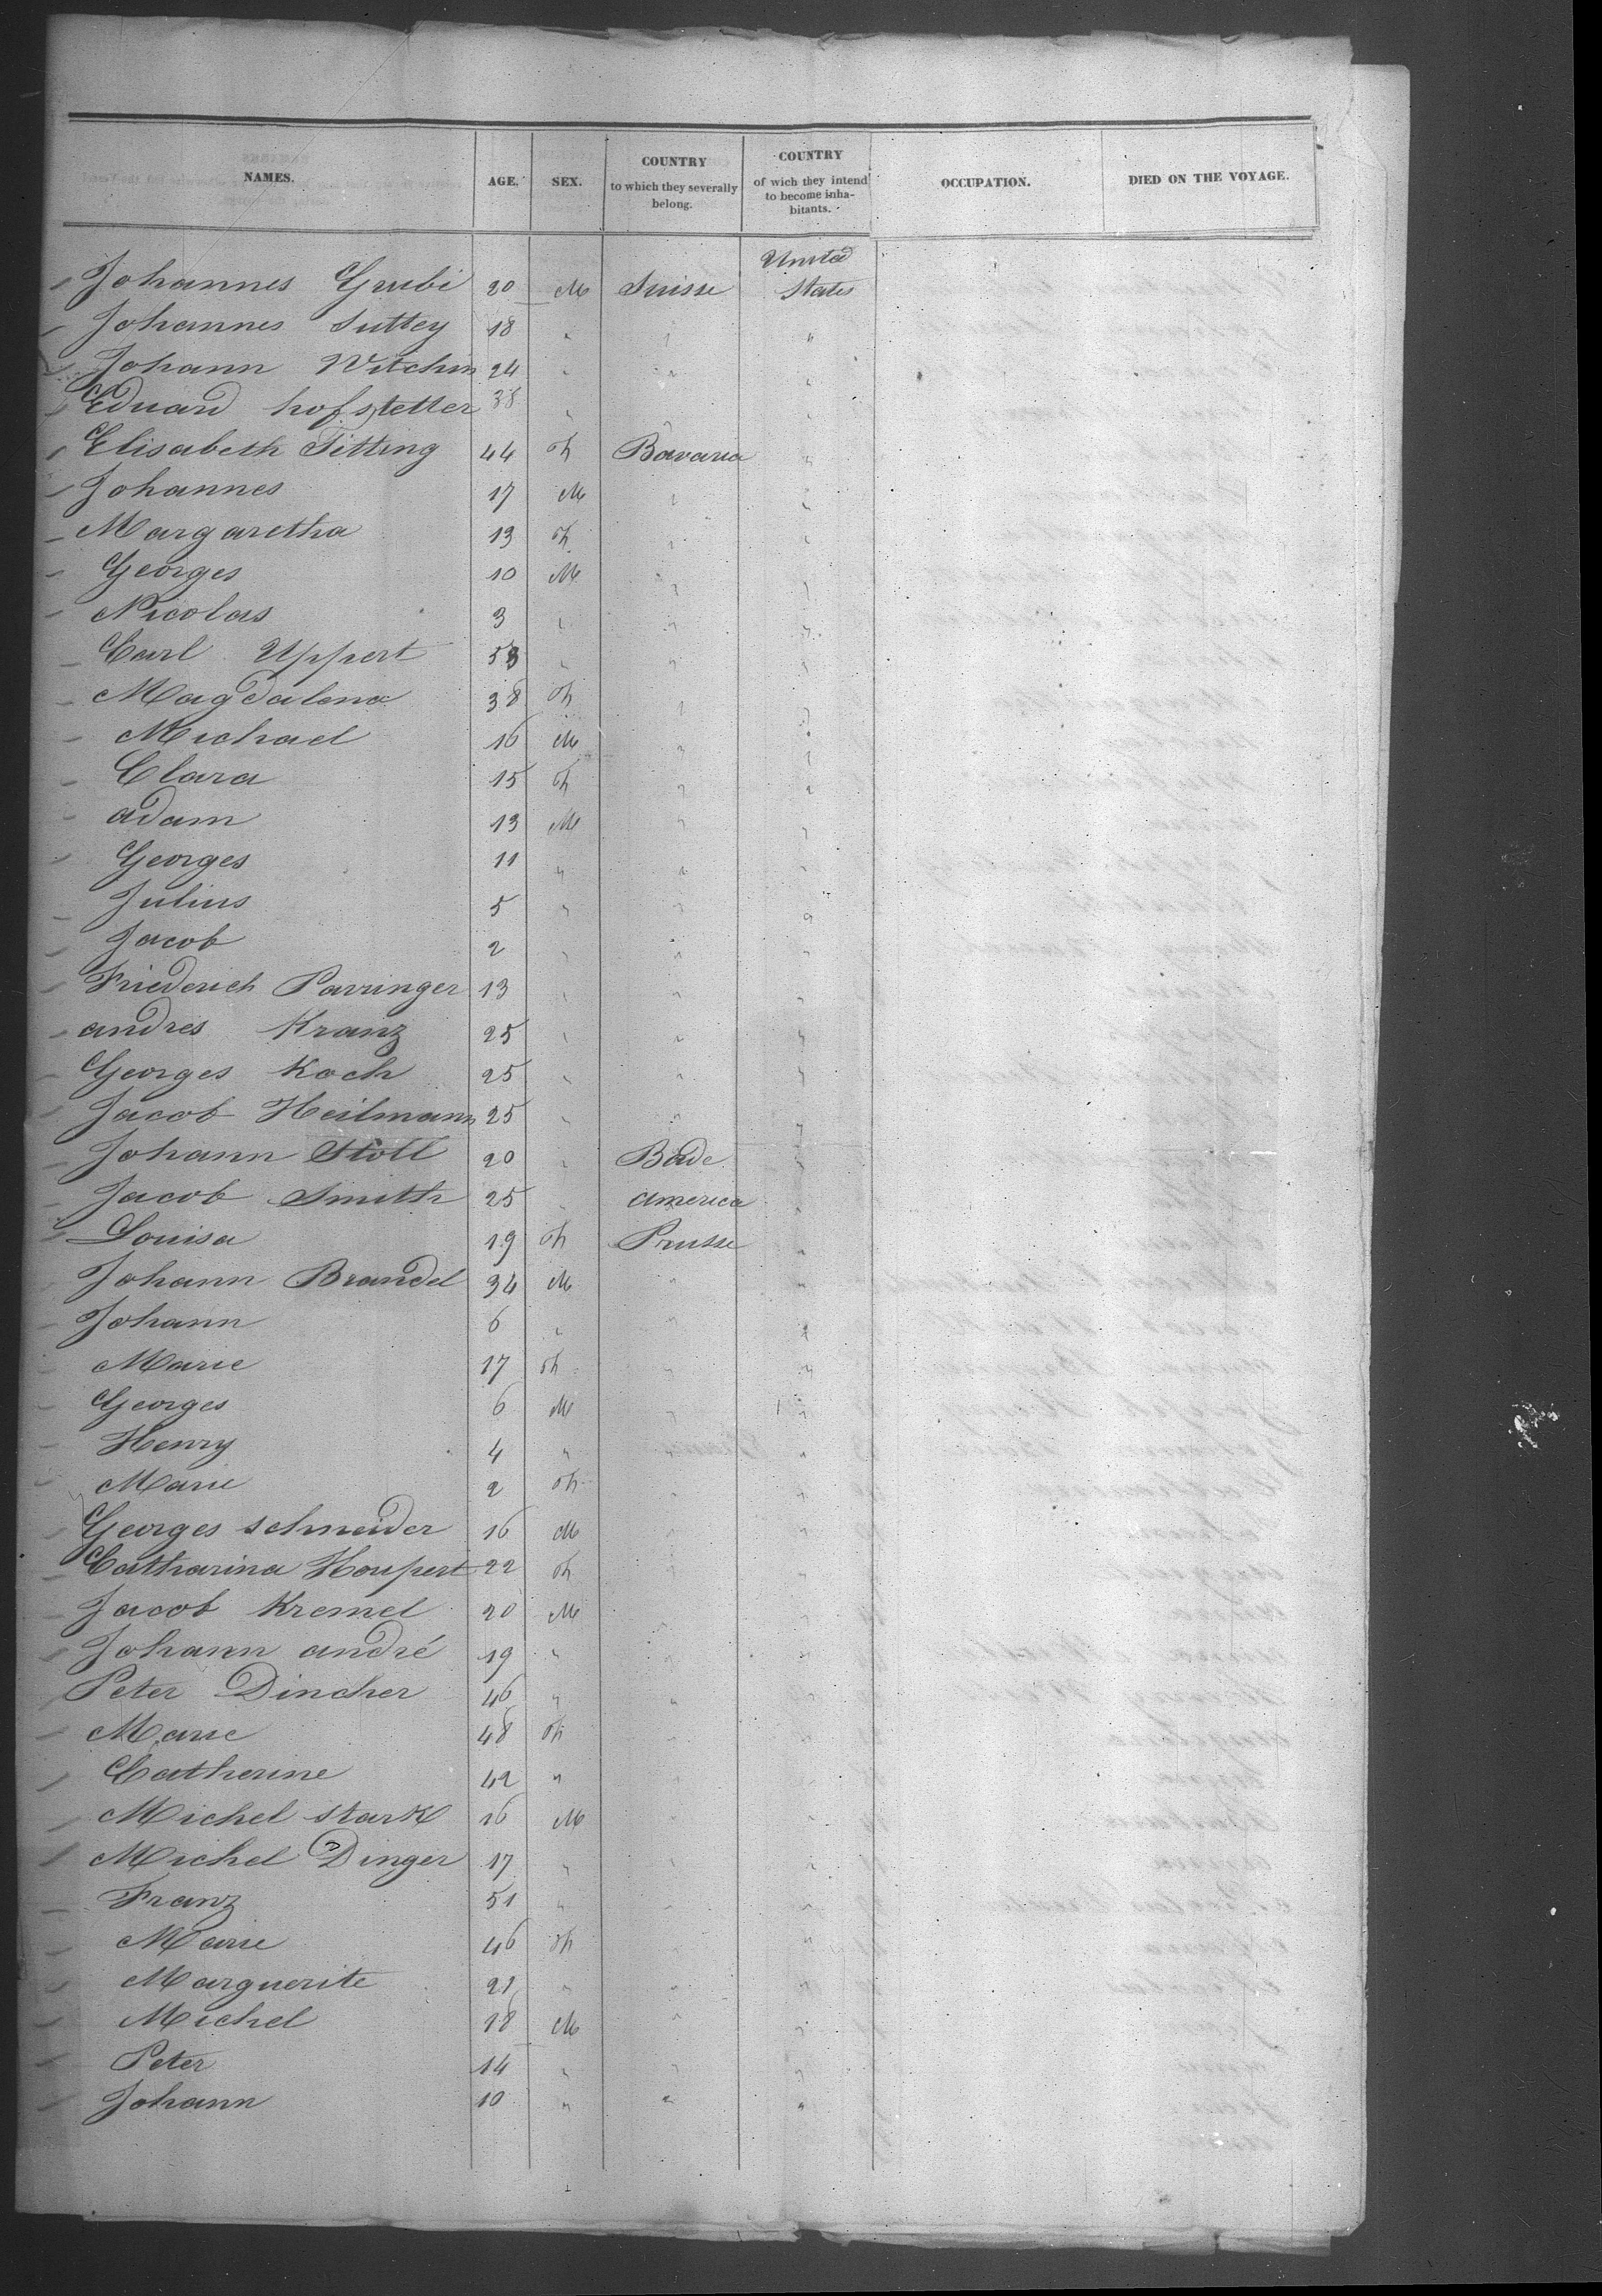 NAMES. AGE. SEX. COUNTRY to which they severally belong. COUNTRY of wich they intend to become inha-bitants. OCCUPATION. DIED ON THE VOYAGE.
Johannes Grubi 20 M Suisse United States
Johannes Suttey 18 " " "
Johann Witchin 24 " " "
Eduard hofstetter 38 " " "
Elisabeth Titting 44 f Bavaria "
Johannes 17 M " "
Margaretha 13 f " "
Georges 10 M " "
Nicolas 3 " " "
Carl Uppert 53 " " "
Magdalena 38 f " "
Michael 16 M " "
Clara 15 f " "
adam 13 M " "
Georges 11 " " "
Julius 5 " " "
Jacob 2 " " "
Friederich Pavringer 13 " " "
andres Kranz 25 " " "
Georges Koch 25 " " "
Jacob Heilmann 25 " " "
Johann Stoll 20 " Bade "
Jacob Smith 25 " america "
Louisa 19 f Prusse "
Johann Brandel 34 M " "
Johann 6 " " "
Marie 17 f " "
Georges 6 M " "
Henry 4 " " "
Marie 2 f " "
Georges schneider 16 M " "
Catharina Houpert 22 f " "
Jacob Kremel 20 M " "
Johann andré 19 " " "
Peter Dincher 46 " " "
Marie 48 f " "
Catherine 42 " " "
Michel stark 16 M " "
Michel Dinger 17 " " "
Franz 51 " " "
Marie 46 f " "
Marguerite 21 " " "
Michel 18 M " "
Peter 14 " " "
Johann 10 " " "